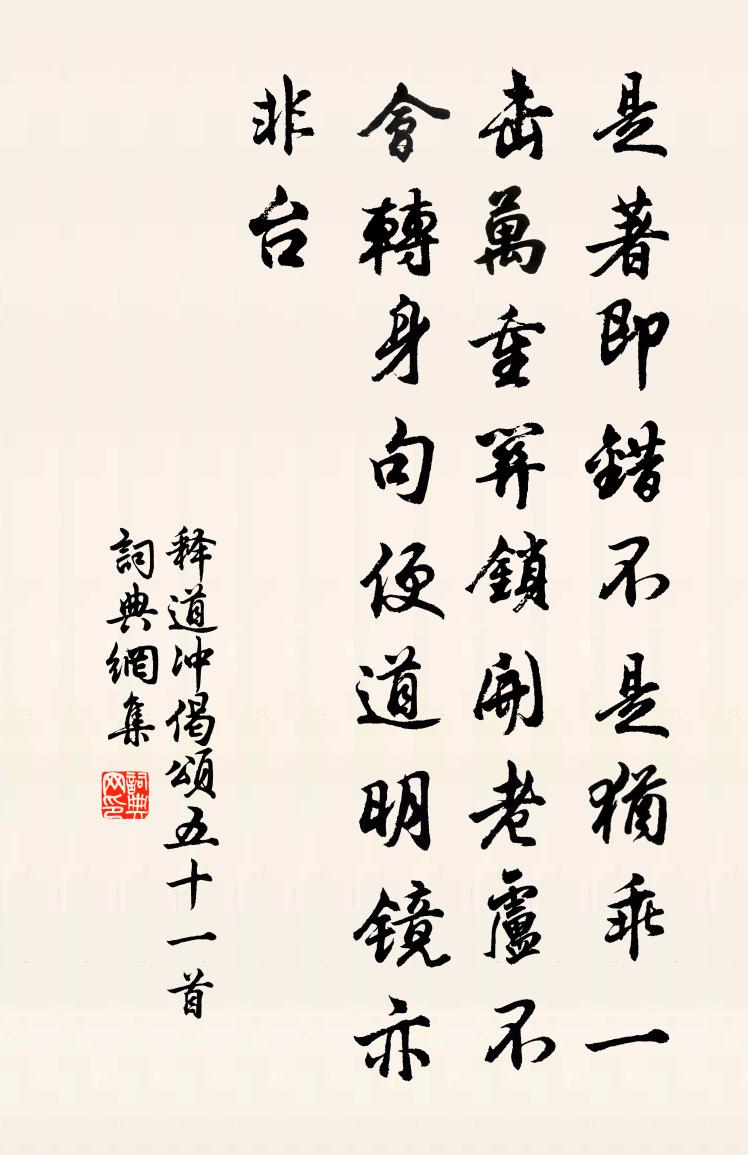 是著即錯不是猶乖一
击萬重關鎖開老盧不
會轉身句便道明鏡亦
非台
释道冲偈頌五十一首
詞典網集
詞典网印